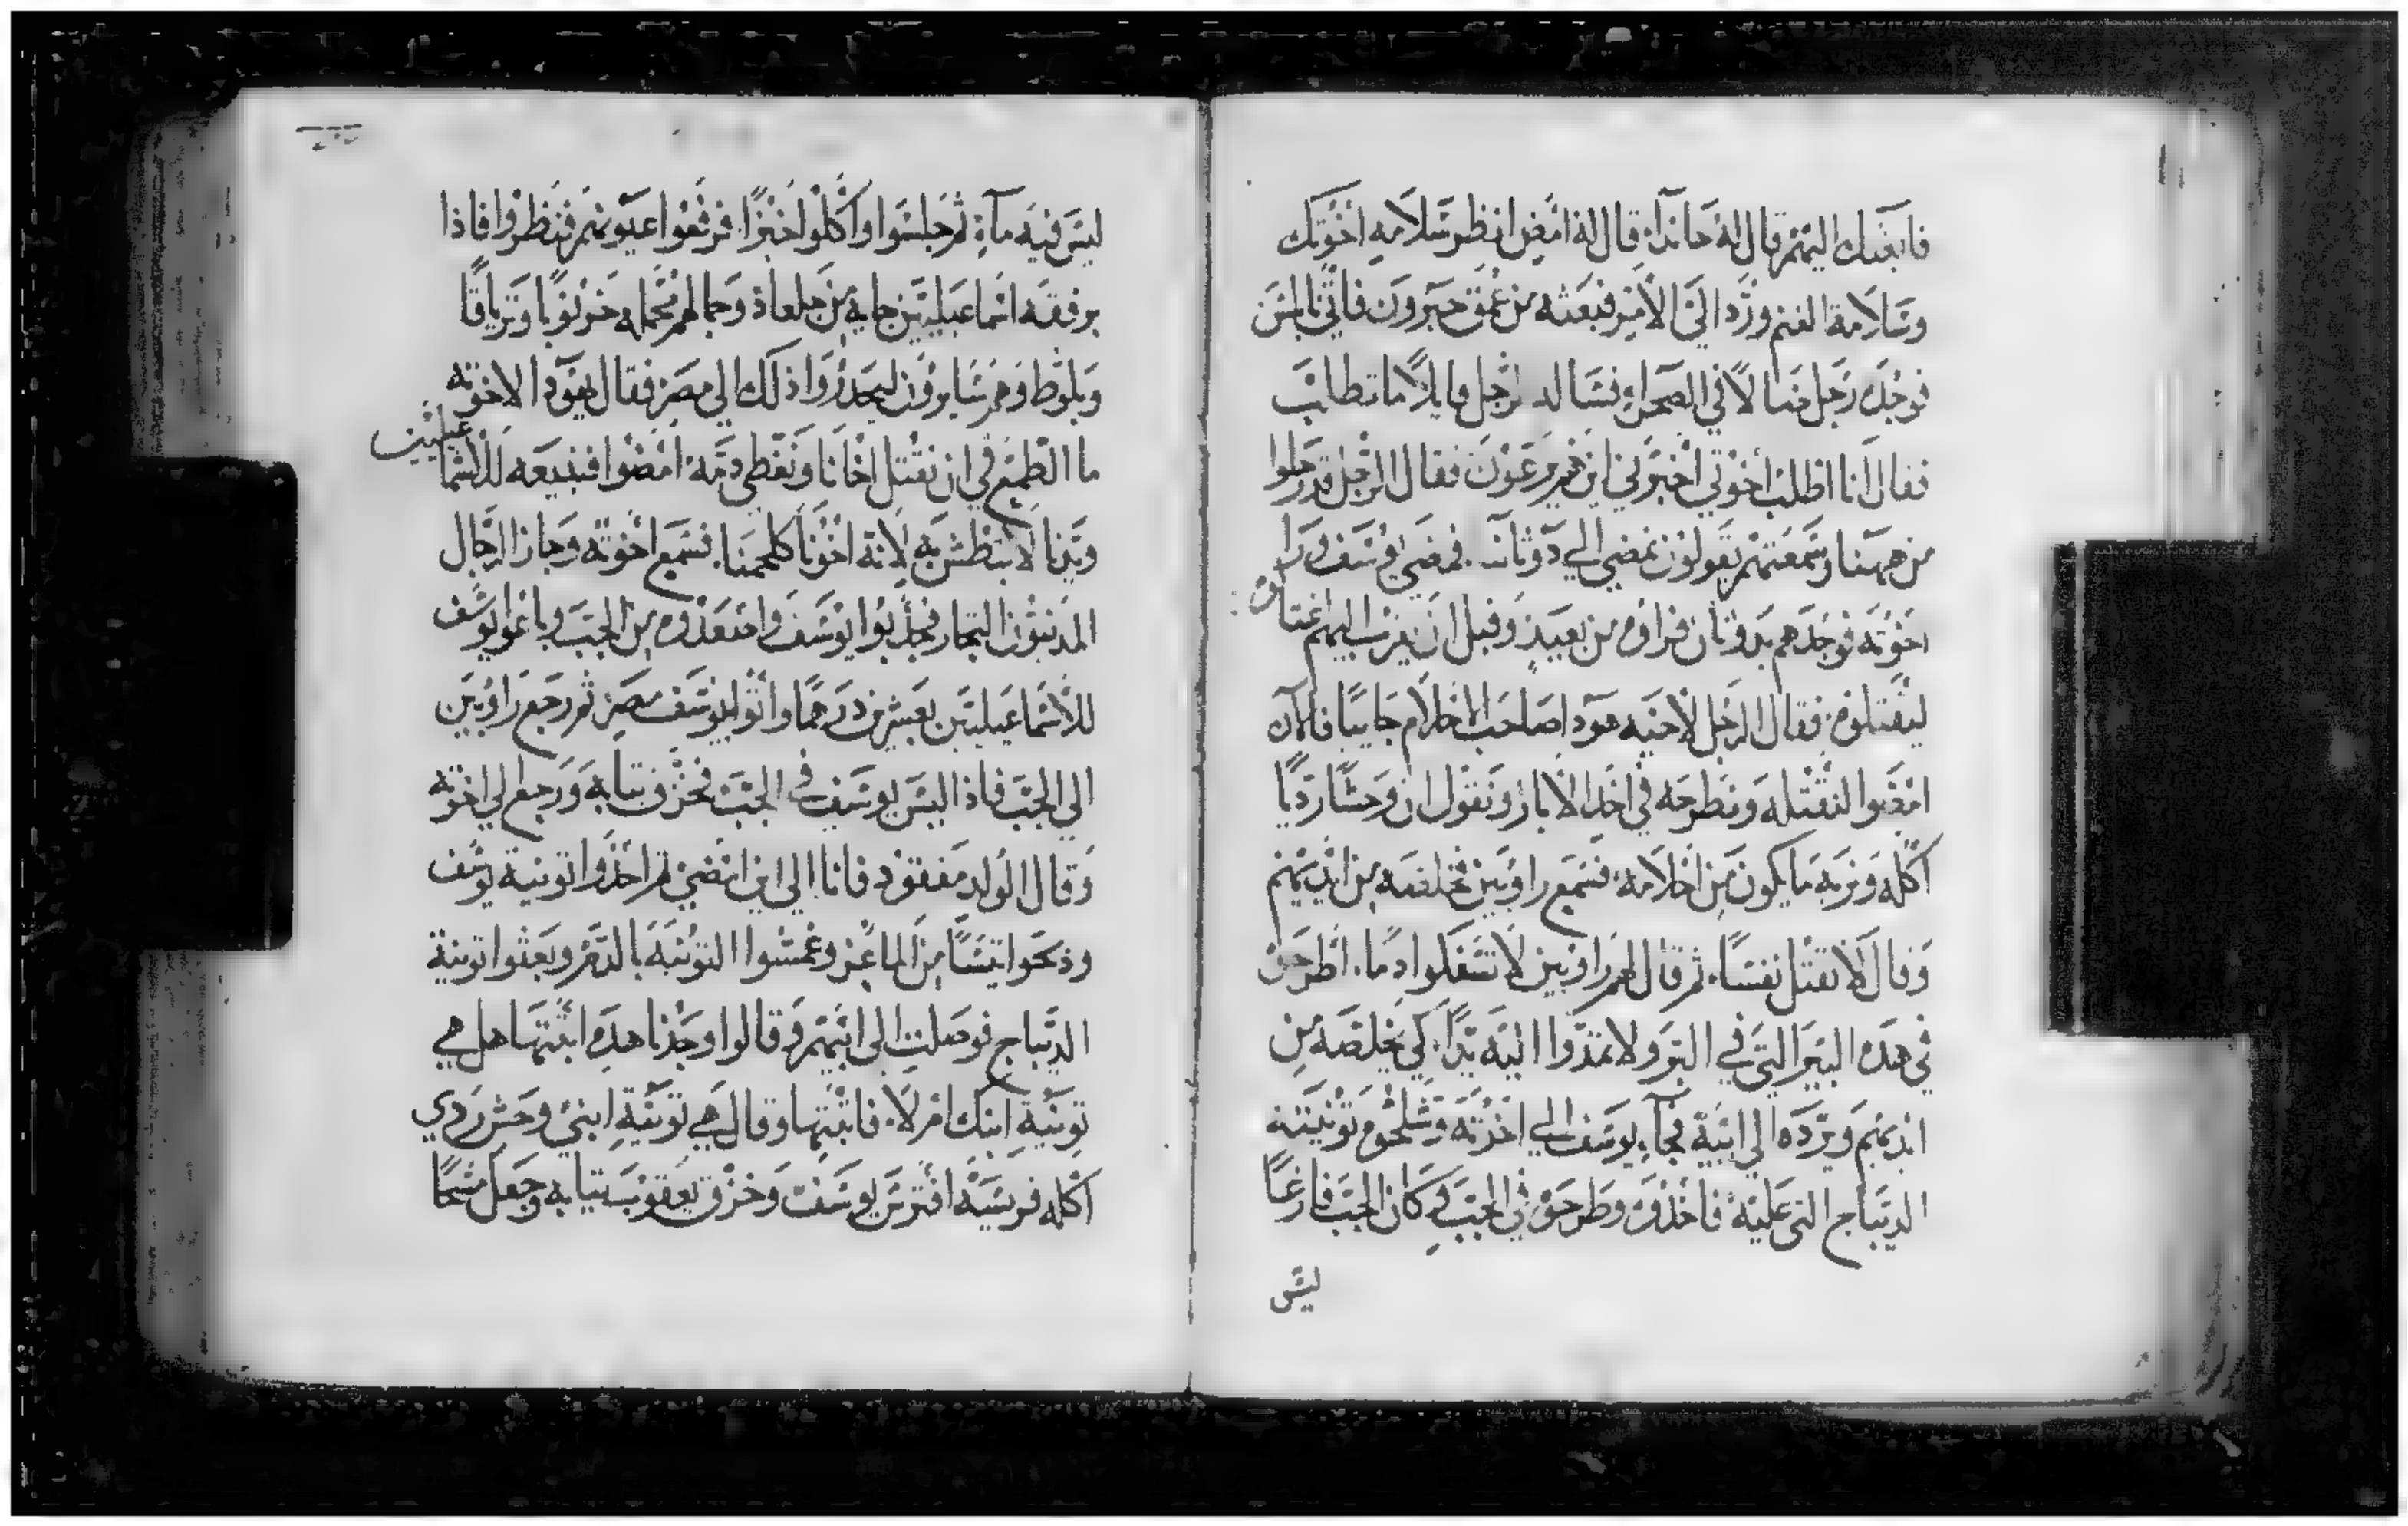 فابعثك اليهم قال له هانذا. قال له امض انظر سلامه اخوتك
وسلامة الغنم ورد الي الامر فبعثه من عمق حبرون فاتي نابلس
فوجده رجل ضالا في الصحرا فساله الرجل قايلا ما تطلب
فقال انا اطلب اخوتي اخبرني اين هم يرعون فقال الرجل قد رحلوا
من ههنا وسمعتهم يقولون نمضي الي دوثان. فمضي يوسف ورا
اخوته فوجدهم بدوثان فراوه من بعيد وقبل ان يقرب اليهم اغتالوه
ليقتلوه. فقال الرجل لاخيه هودا صاحب الاحلام جاييا فالان
امضوا لنقتله ونطرحه في احد الابار ونقول ان وحشا رديا
اكله ونري ما يكون من احلامه. فسمع راوبين فخلصه من ايديهم
وقال لا نقتل نفسا. ثم قال لهم راوبين لا تسفكوا دما. اطرحوه
في هذه البير التي في البر ولا تمدوا اليه يدا. كي يخلصه من
ايديهم ويرده الي ابيه فجآ يوسف الي اخوته وشلحوه تونيته
الديباج التي عليه فاخذوه وطرحوه في الجب وكان الجب فارغا
ليس
ليس فيه مآء ثم جلسوا واكلوا خبزا. فرفعوا عيونهم فنظروا فاذا
برفقه اسماعيليين جايه من جلعاد وجمالهم محمله خرنوبا وترياقا
وبلوط وهم سايرون ليحدروا ذلك الي مصر فقال يهودا لاخوته
ما الطمع في ان نقتل اخانا ونغطي دمه امضوا فنبيعه للاسماعيليين
ويدنا لا تبطش به لانه اخونا كلحمنا. فسمع اخوته وجازا الرجال
المدينيون التجار فجذبوا يوسف واصعدوه من الجب وباعوا يوسف
للاسماعيليين بعشرين درهما واتوا بيوسف مصر ثم رجع راوبين
الي الجب فاذا ليس يوسف في الجب فخزق ثيابه ورجع الي اخوته
وقال الولد مفقود فانا الي اين امضي ثم اخذوا تونية يوسف
وذبحوا تيسا من الماعز وغمسوا التونية بالدم وبعثوا تونية
الديباج فوصلت الي ابيهم وقالوا وجدنا هذه اثبتها هل هي
تونية ابنك ام لا. فاثبتها وقال هي تونية ابني وحش ردي
اكله فريسة افترس يوسف وخزق يعقوب ثيابه وجعل مسحا